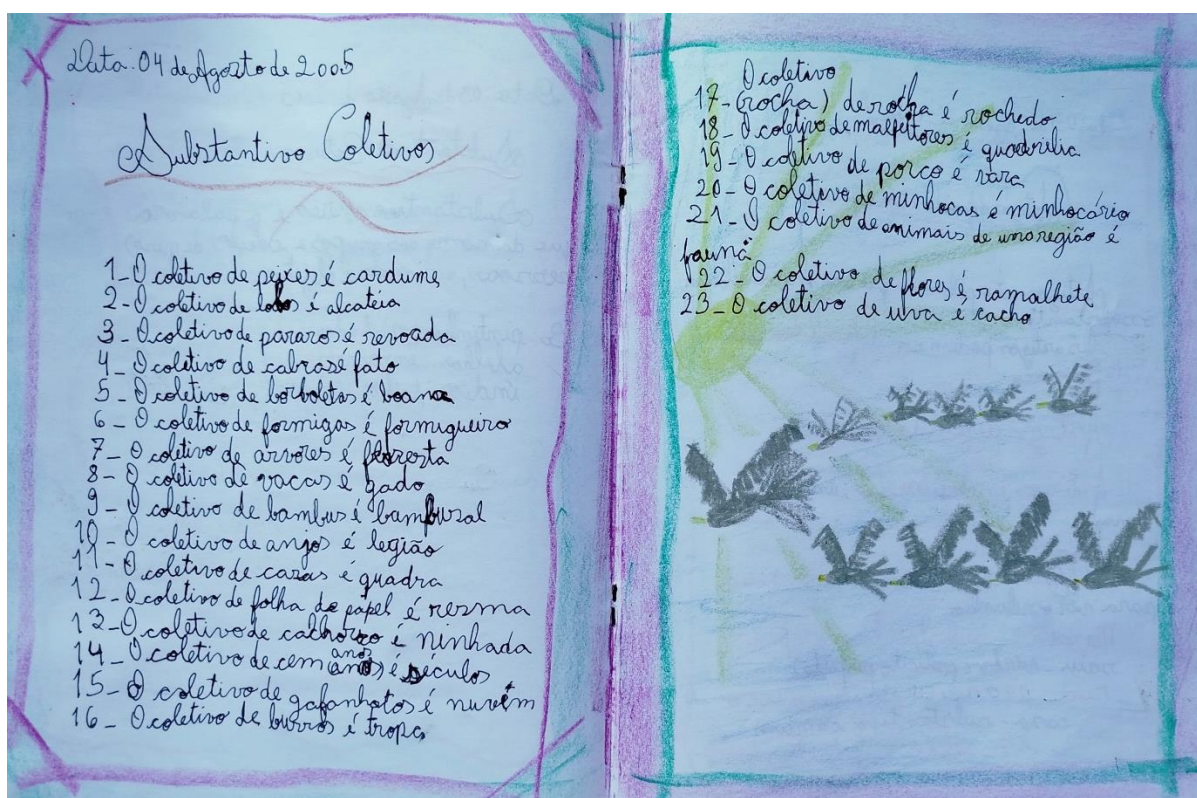 Data: 04 de Agosto de 2005
Substantivo Coletivos
1- O coletivo de peixes é cardume
2- O coletivo de lobos é alcatéia
3- O coletivo de pararos é revoada
4- O coletivo de cabras é fato
5- O coletivo de borboletas é boana
6- O coletivo de formigas é formigueiro
7- O coletivo de arvores é floresta
8- O coletivo de vacas é gado
9- O coletivo de bambus é bambuzal
10- O coletivo de anjos é legião
11- O coletivo de cazas é quadra
12- O coletivo de folha de papel é resma
13- O coletivo de cachorro é ninhada
14- O coletivo de cem anos é séculos
15- O coletivo de gafanhotos é nuvem
16- O coletivo de burros é tropa
O coletivo
17- (rocha) de rocha é rochedo
18- O coletivo de malfeitores é quadrilia
19- O coletivo de porco é vara
20- O coletivo de minhocas é minhocário
21- O coletivo de animais de uma região é
fauna
22- O coletivo de flores é ramalhete
23- O coletivo de uva é cacho